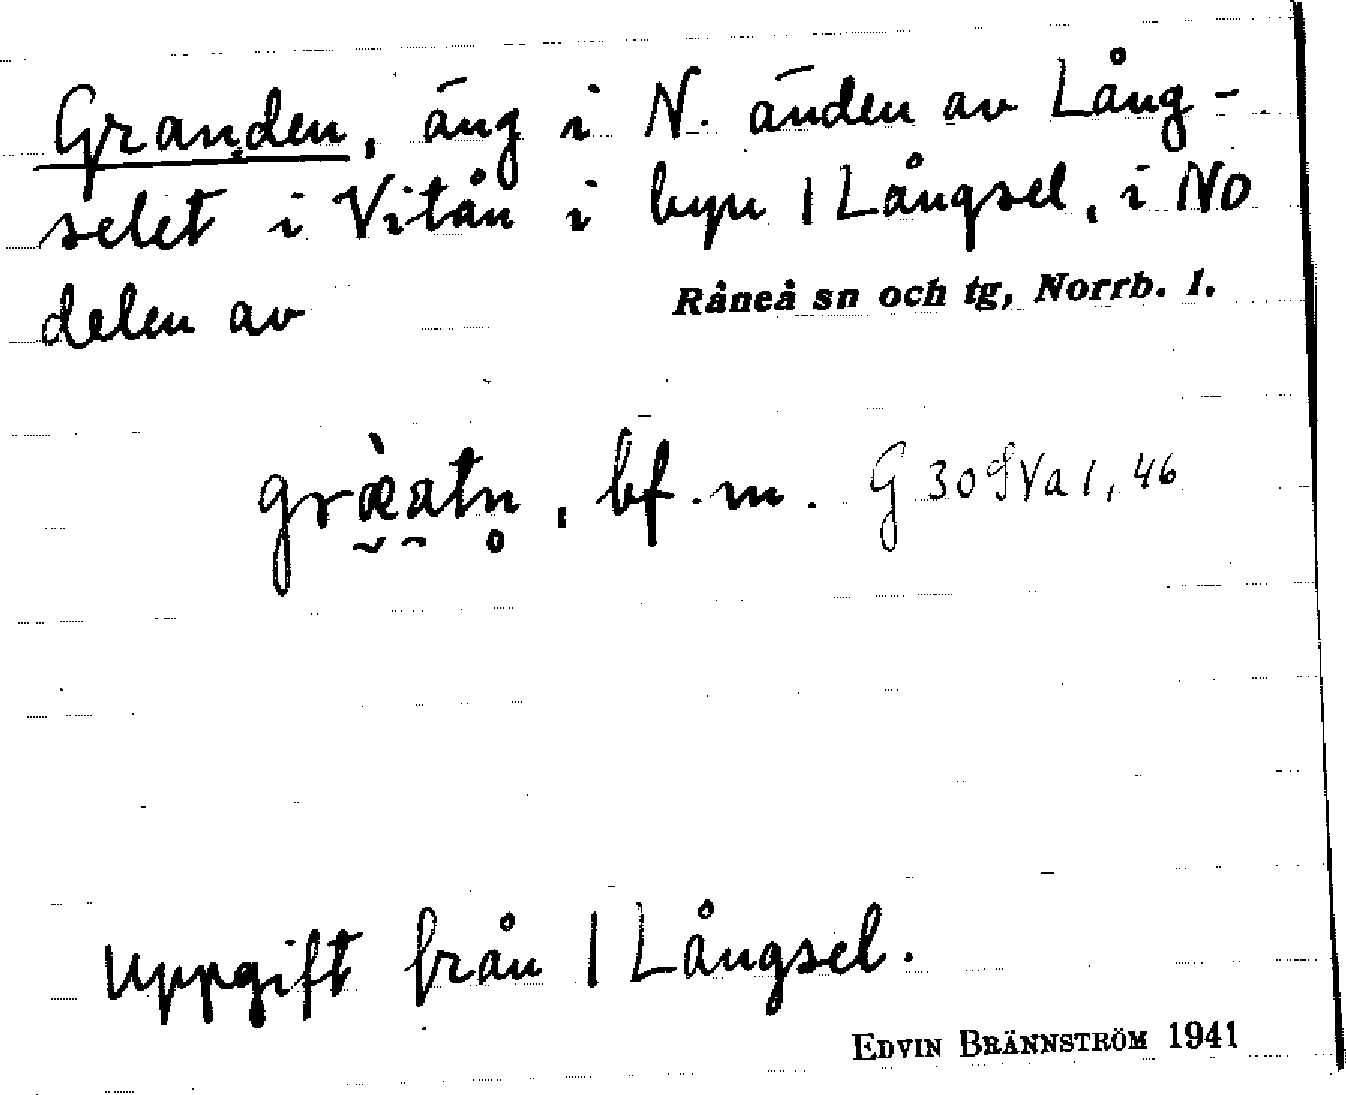 Granden, äng i N. änden av Lång-
selet i Vitån i byn 1 Långsel, i NO
delen av Råneå sn och tg, Norrb. l.
græ̀atn̥, bf. m. G 30
Uppgift från 1 Långsel.
EDVIN BRÄNNSTRÖM 1941